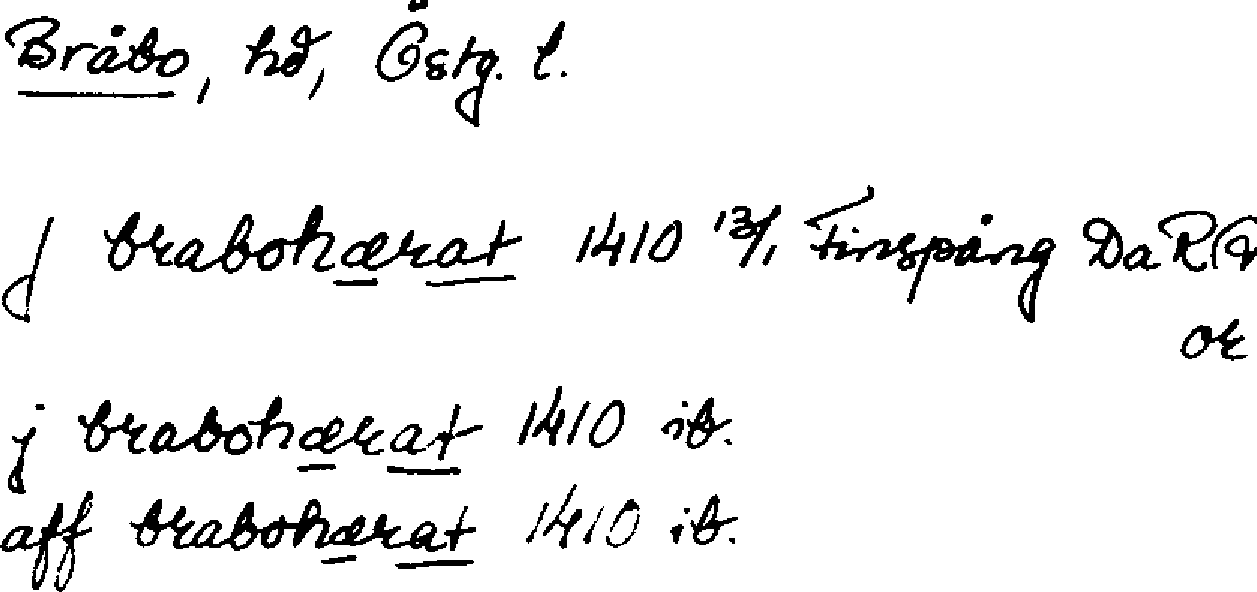 Bråbo, hd, Östg. l.
J brabohærat 1410 13/1 Finspång Da RA
or
j brabohærat 1410 ib.
aff brabohærat 1410 ib.